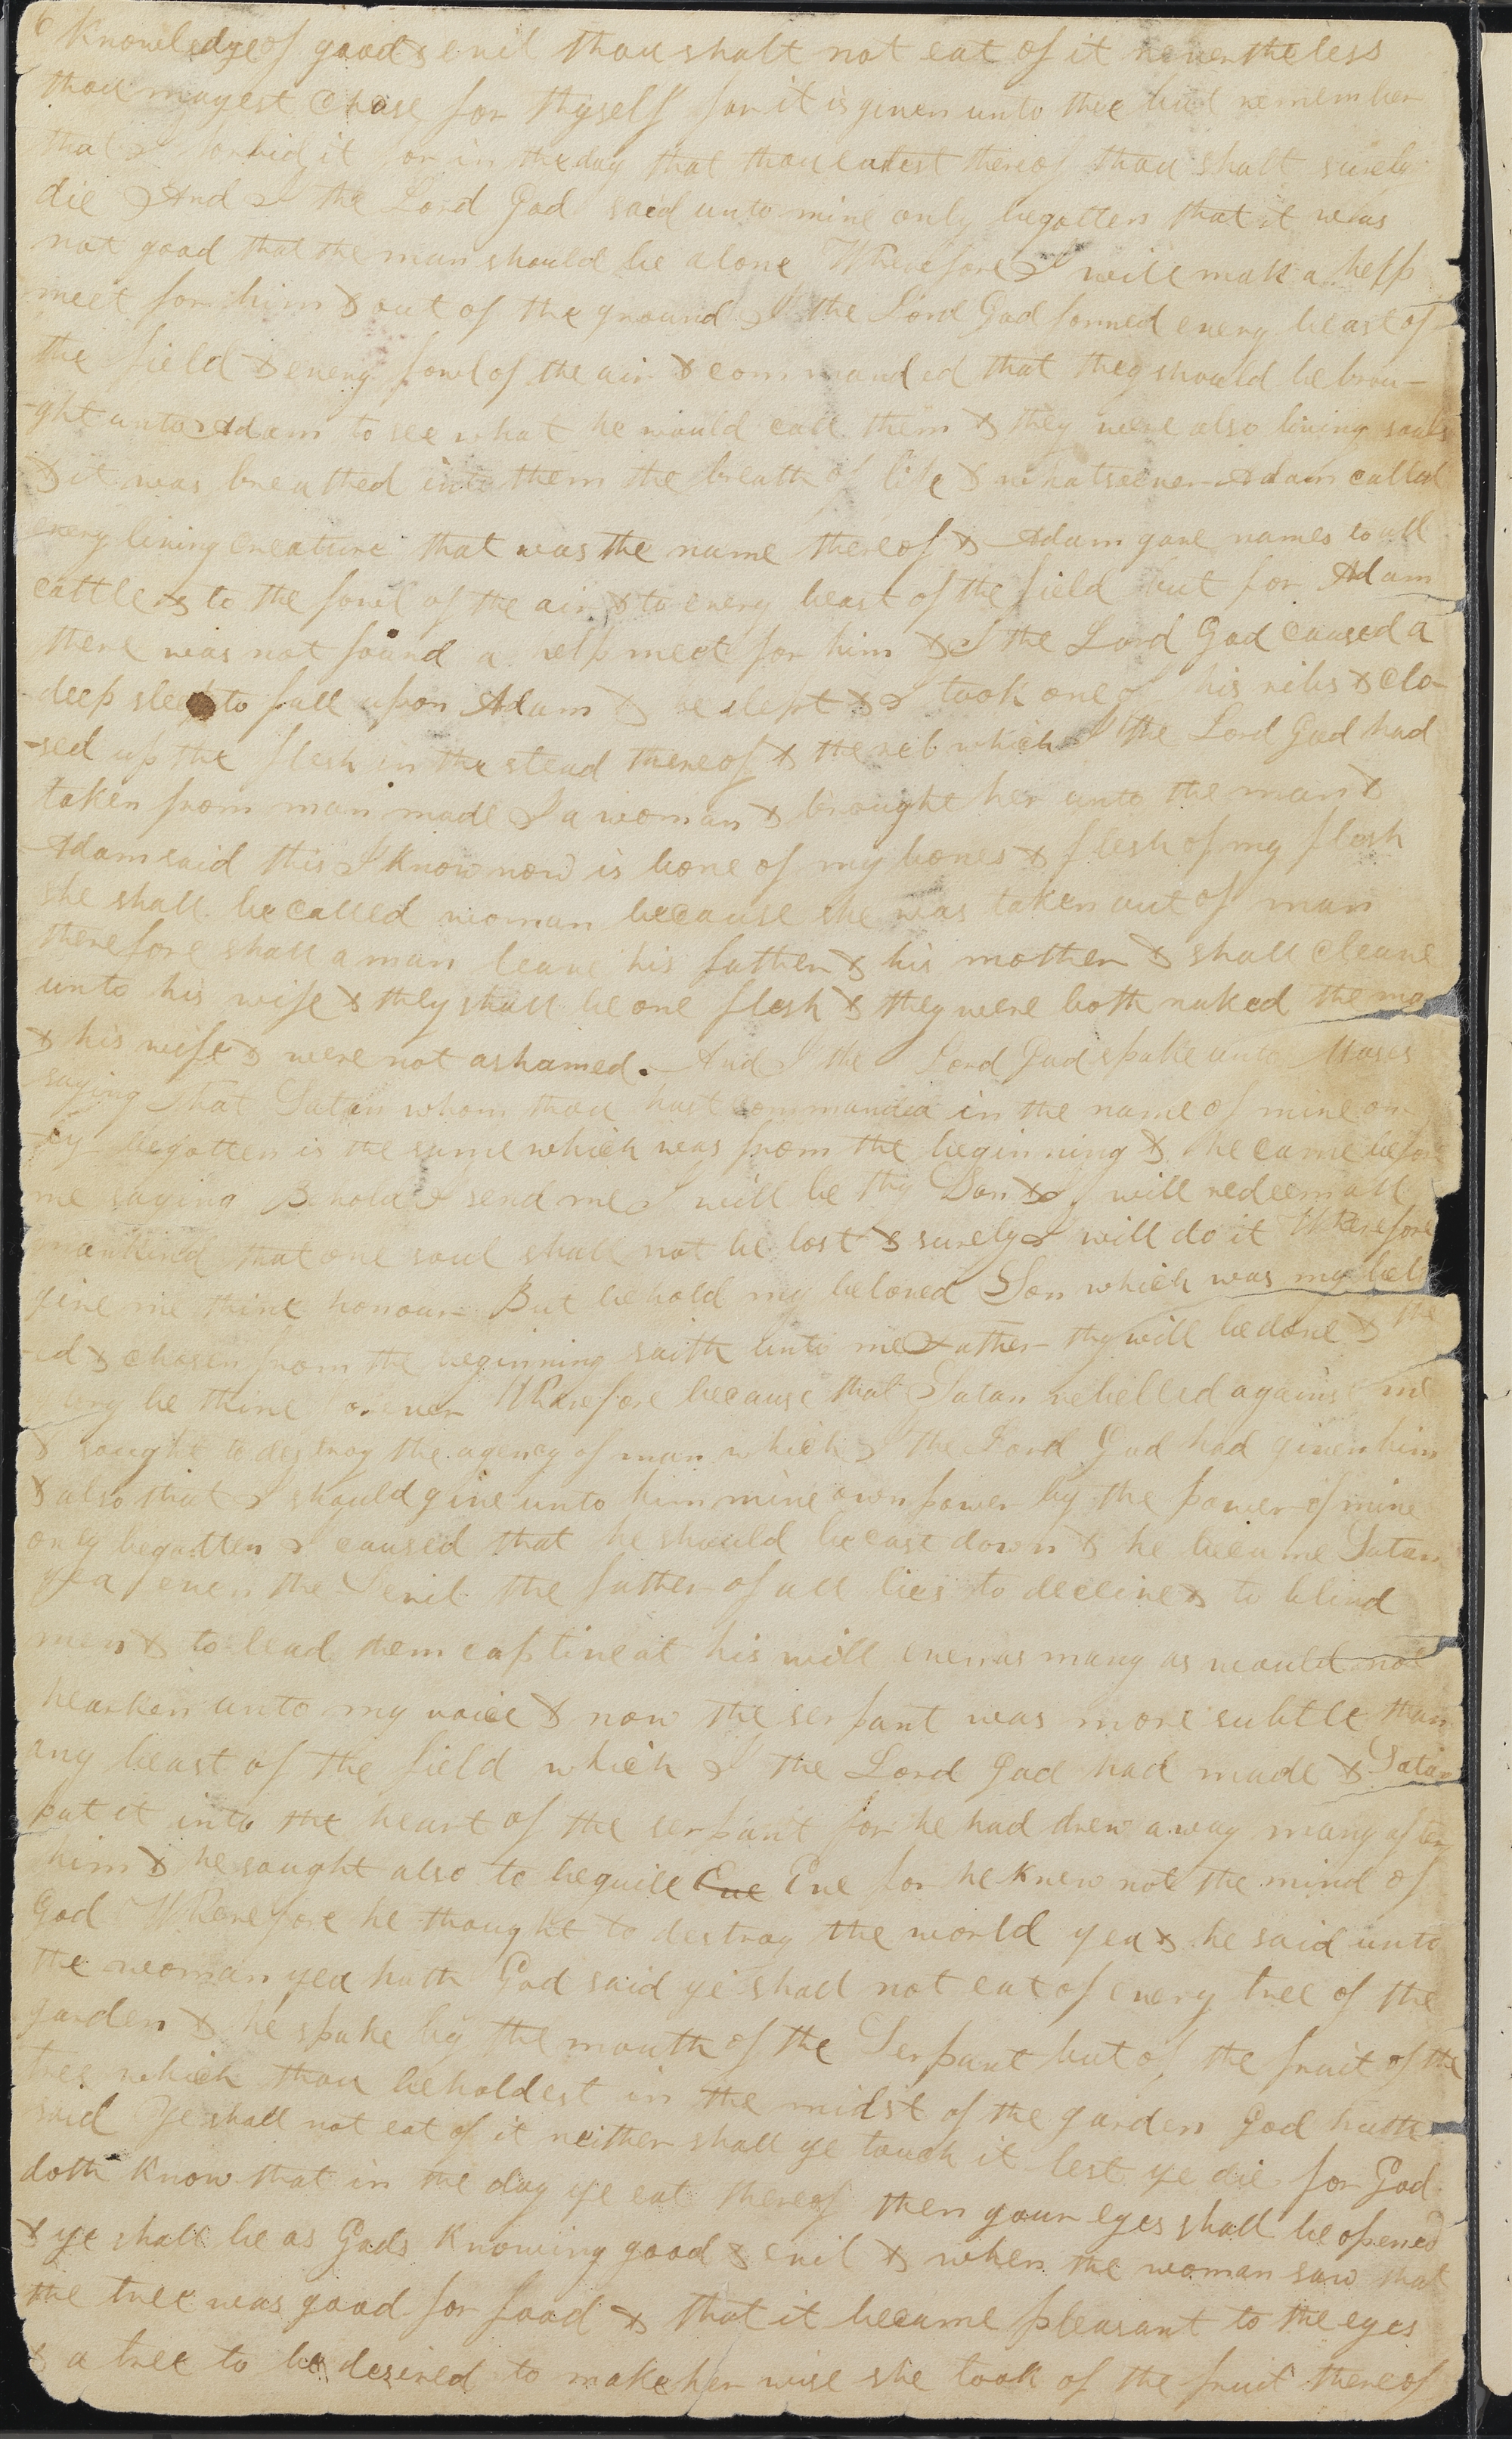 6
Knowledge of good & evil thou shalt not eat of it nevertheless
thou mayest chose for thyself for it is given unto thee but remember
that I forbid it for in the day that thou eatest thereof thou shalt surely
die And I the Lord God said unto mine only begotten that it was
not good that the man should be alone Wherefore I will mak a help
meet for him & out of the ground I the Lord God formed every beast of
the field & every fowl of the air & commanded that they should be brou-
-ght unto Adam to see what he would call them & they were also living souls
& it was breathed into them the breath of life & whatsoever Adam called
every living creature that was the name thereof & Adam gave names to all
cattle & to the fowl of the air & to every beast of the field but for Adam
there was not found a help meet for him & I the Lord God caused a
deep sleep to fall upon Adam & he slept & I took one of his ribs & clo-
-sed up the flesh in the stead thereof & the rib which I the Lord God had
taken from man made I a woman & brought her unto the man &
Adam said this I know now is bone of my bones & flesh of my flesh
she shall be called woman because she was taken out of man
therefore shall a man leave his father & his mother & shall cleave
unto his wife & they shall be one flesh & they were both naked the ma
& his wife & were not ashamed. And I the Lord God spake unto Moses
saying That Satan whom thou hast commanded in the name of mine on
-ly begotten is the same which was from the beginning & he came before
me saying Behold I send me I will be thy Son & I will redeem all
mankind that one soul shall not be lost & surely I will do it Wherefore
give me thine honour But behold my beloved Son which was my belov
-ed & chosen from the beginning saith unto me Father thy will be done & the
glory be thine forever Wherefore because that Satan rebelled against me
& sought to destroy the agency of man which I the Lord God had given him
& also that I should give unto him mine own power by the power of mine
only begotten I caused that he should be cast down & he became Satan
yea even the Devil the father of all lies to deceive & to blind
men & to lead them captive at his will even as many as would not
hearken unto my voice & now the serpant was more subtle than
any beast of the field which I the Lord God had made & Satan
put it into the heart of the serpant for he had drew away many after
him & he sought also to beguile Eve Eve for he knew not the mind of
God Wherefore he thought to destroy the world yea & he said unto
the woman yea hath God said ye shall not eat of every tree of the
garden & he spake by the mouth of the Serpant but of the fruit of the
tree which thou beholdest in the midst of the garden God hath
said Ye shall not eat of it neither shall ye touch it lest ye die for God
doth know that in the day ye eat thereof then your eyes shall be opened
& ye shall be as Gods knowing good & evil & when the woman saw that
the tree was good for food & that it became pleasant to the eyes
& a tree to be desired to make her wise she took of the fruit thereof